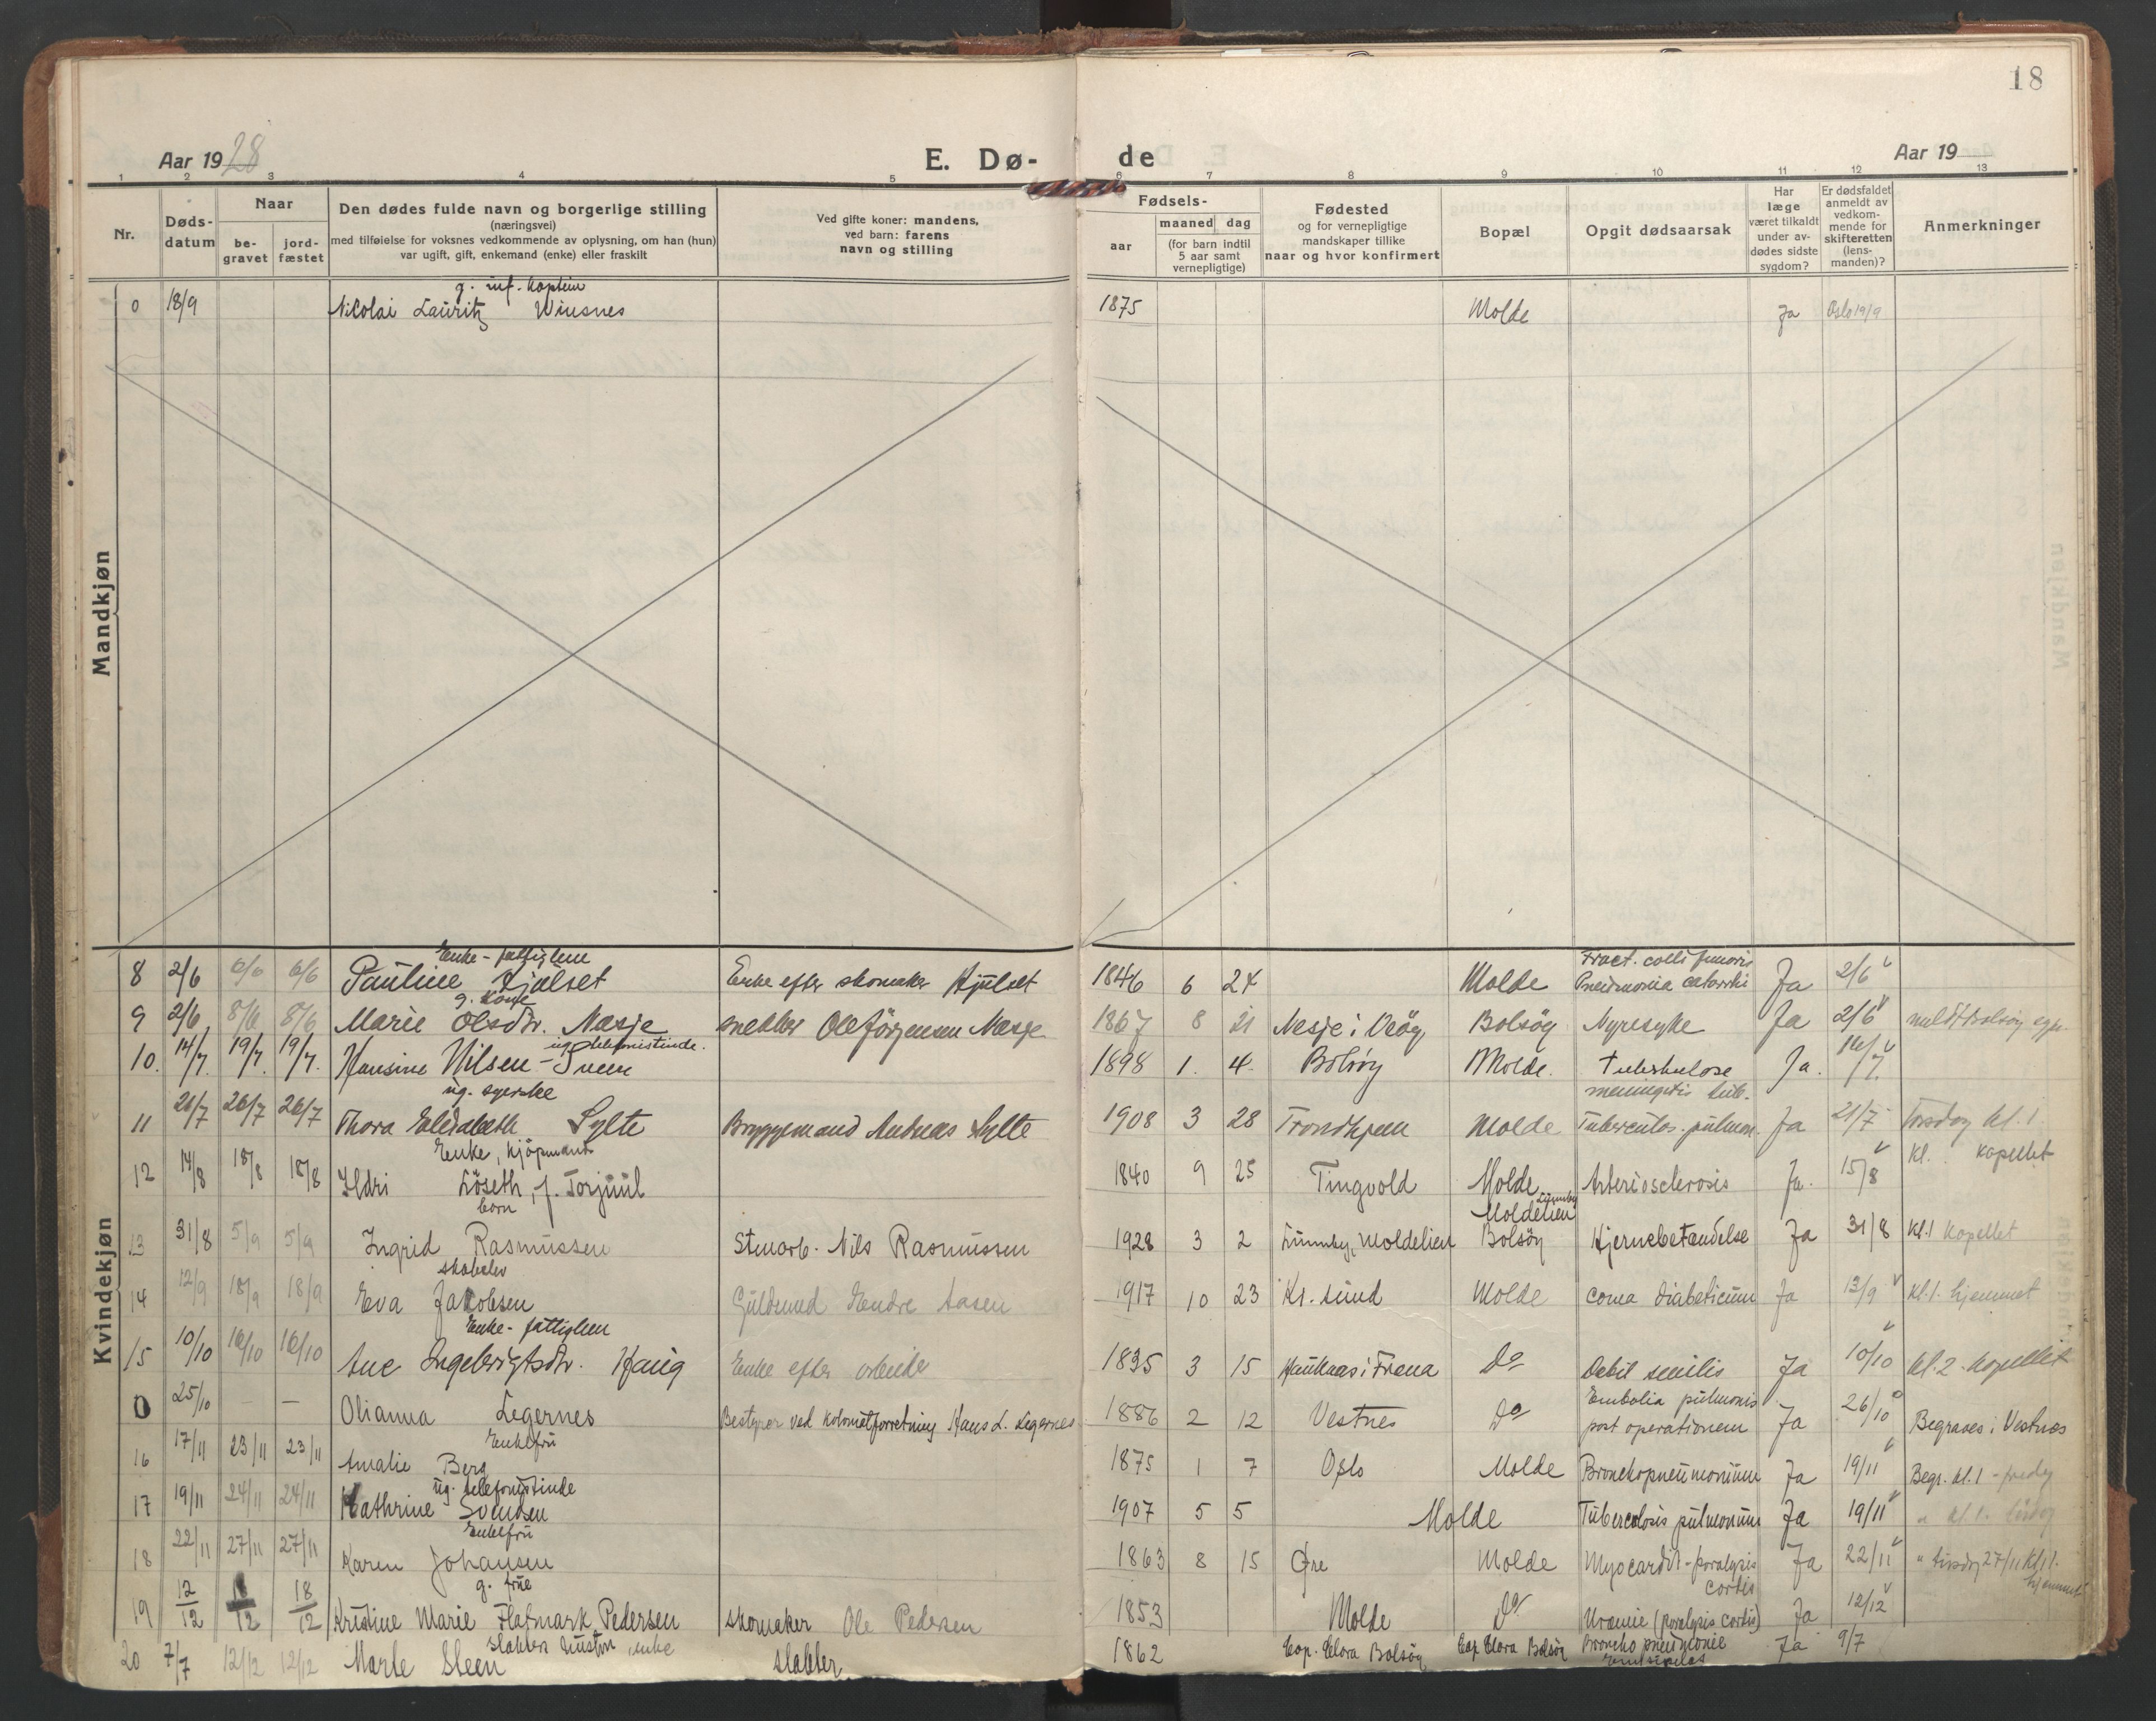 18
Aar 1928 E. Dø- de Aar 19
1 2 3 4 5 6 7 8 9 10 11 12 13
Nr.
Døds-
datum
Naar
be-
gravet
jord-
fæstet
Den dødes fulde navn og borgerlige stilling
(næringsvei)
med tilføielse for voksnes vedkommende av oplysning, om han (hun)
var ugift, gift, enkemand (enke) eller fraskilt
Ved gifte koner: mandens,
ved barn: farens
navn og stilling
Fødsels-
aar
maaned dag
(for barn indtil
5 aar samt
vernepligtige)
Fødested
og for vernepligtige
mandskaper tillike
naar og hvor konfirmert
Bopæl
Opgit dødsaarsak
Har
læge
været tilkaldt
under av-
dødes sidste
sygdom?
Er dødsfaldet
anmeldt av
vedkom-
mende for
skifteretten
(lens-
manden)?
Anmerkninger
Mandkjøn
g. inf. kaptein
0 18/9 Nicolai Lauritz Winsnes 1875 Molde Ja Oslo 19/9
Kvindekjøn
Enke - fattiglem Fract. colli femoris
8 2/6 6/6 6/6 Pauline Hjelset Enke efter skomaker Hjelset 1846 6 24 Molde Pneumonia catarrhi Ja 2/6
g. kone
9 2/6 8/6 8/6 Marie Olsdtr. Næsje snekker Ole Jörgensen Næsje 1867 8 21 Nesje i Veöy Bolsöy Nyresyke Ja 2/6 meldt Bolsöy
ug.
10. 14/7. 19/7. 19/7. Hansine Nilsen - Sveen 1898 1. 4. Bolsöy Molde. Tuberkulose Ja. 14/7.
ug. syerske meningitis tub.
11 21/7 26/7 26/7 Thora Elisabeth Sylte Bryggemand Andreas Sylte 1908 3 28 Trondhjem Molde Tuberculos. pulmon. Ja 21/7 Torsdag kl. 1
Enke, kjöpmand kl. kapellet
12 14/8 18/8 18/8 Ildri Löseth, f. Torjuul 1840 9 25 Tingvold Molde Arteriosclerosis Ja. 15/8
barn Moldelien
13 31/8 5/9 5/9 Ingrid Rasmussen Stenarb. Nils Rasmussen 1928 3 2 Moldelien Bolsöy Hjernebetændelse Ja 31/8 kl. 1 kapellet
skoleelev
14 12/9 18/9 18/9 Eva Jakobsen Guldsmed Endre Aasen 1917 10 23 Kr. sund Molde Coma diabeticum Ja 13/9 kl. 1. hjemmet
Enke - fattiglem
15 10/10 16/10 16/10 Ane Ingebrigtsdtr. Haug Enke efter arbeider 1835 3 15 Haukaas i Fræna Do Debil senilis Ja 10/10 kl. 2. kapellet
Embolia pulmonis
0 25/10 - - Olianna Legernes Bestyrer ved kolonialforretning Hans L. Legernes 1886 2 12 Vestnes Do post operationem Ja 26/10 Begraves i Vestnes
Enkefru
16 17/11 23/11 23/11 Amalie Berg 1875 1 7 Oslo Molde Bronchopneumonium Ja 19/11 Begr. kl. 1 - fredag
ug. telefonistinde
17 19/11 24/11 24/11 Kathrine Svendsen 1907 5 5 Molde Tuberculosis pulmonum Ja 19/11 " kl. 1. lördag
Enkefru
18 22/11 27/11 27/11 Karen Johansen 1863 8 15 Öre Molde Myocardit - paralysis Ja 22/11 " tirsdag 27/11 kl. 1.
g. frue cordis hjemmet
19 12/12 18/12 18/12 Kristine Marie Flatmark Pedersen skomaker Ole Pedersen 1853 Molde Do Uræmie (paralysis cordis) Ja 12/12
enke Broncho pneumonie
20 7/7 12/12 12/12 Marte Steen slakter 1862 Eap. Clora Bolsöy Eap. Clora Bolsöy Ja 9/7